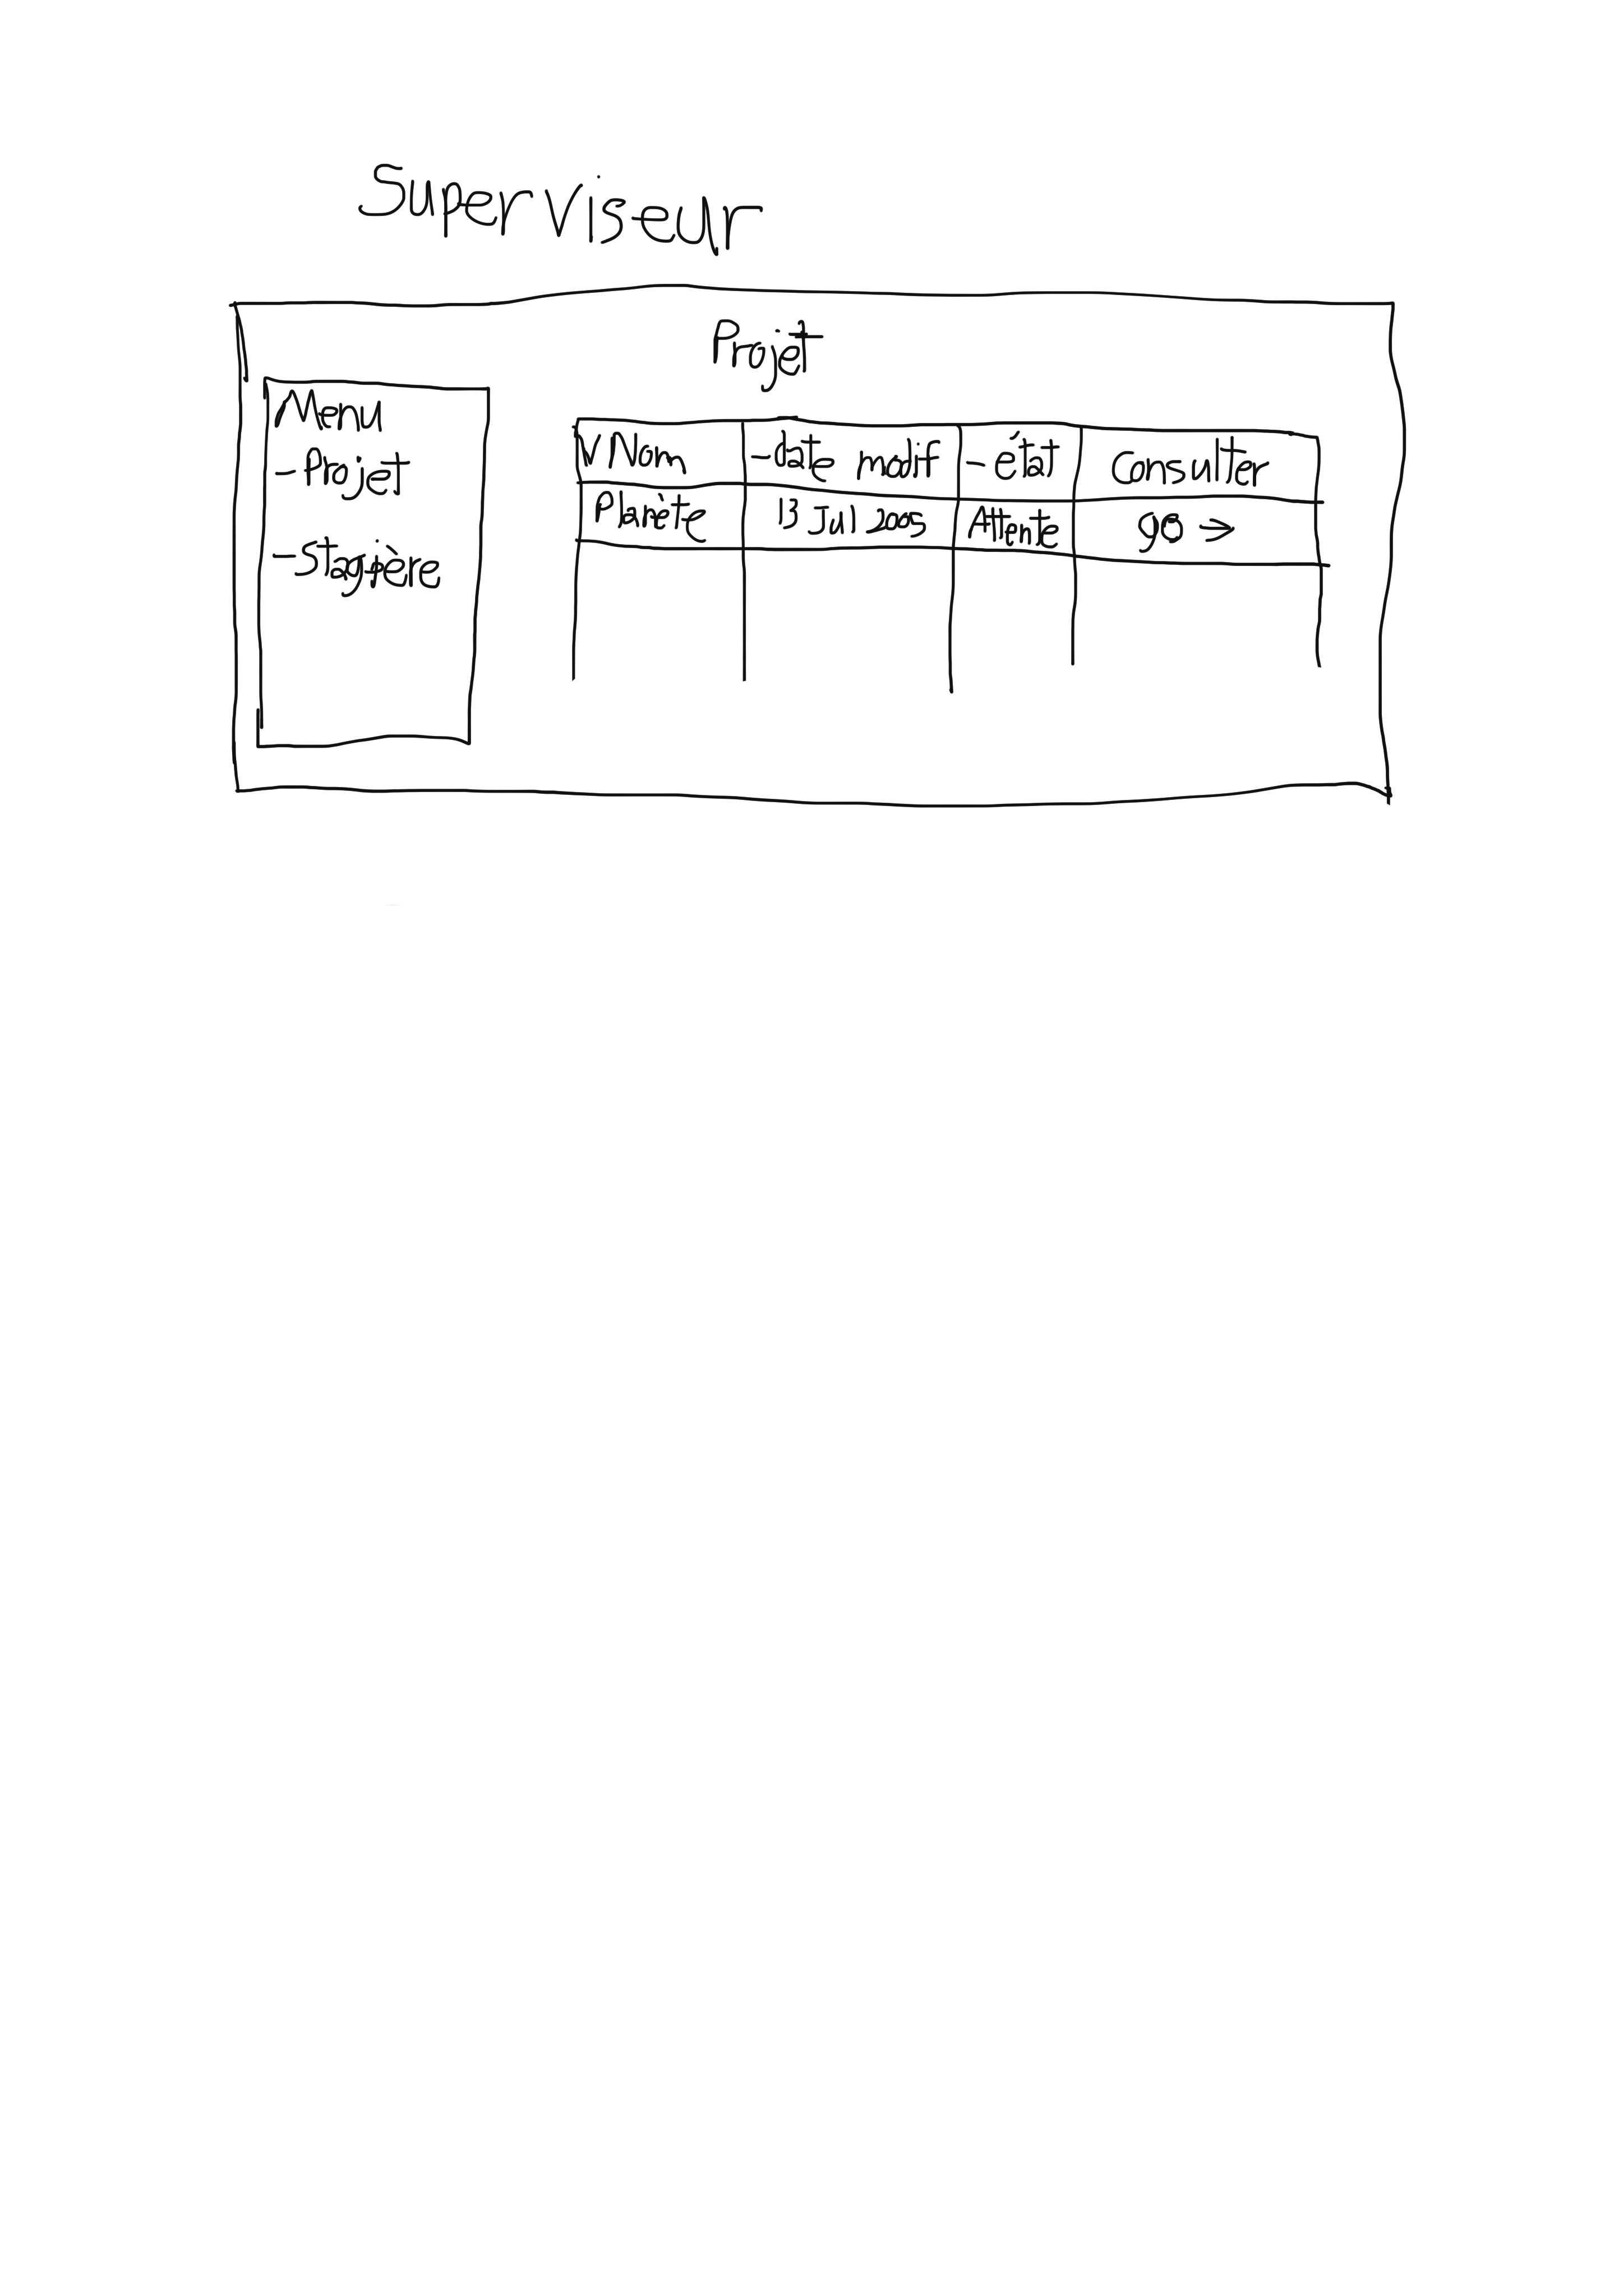 Superviseur
Projet
Menu
- Projet
- Stagière
V Nom - date modif - état Consulter
Planète 13 Jul 2005 Attente go →